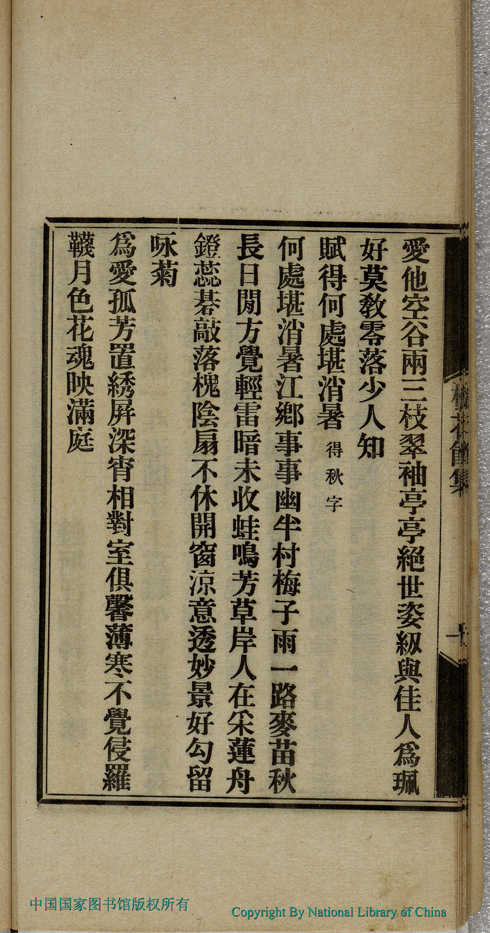 愛他空谷兩三枝翠袖亭亭絕世姿紉與佳人爲珮
好莫教零落少人知
賦得何處堪消暑 得秋字
何處堪消暑江鄉事事幽半村梅子雨一路麥苗秋
長日閒方覺輕雷暗未收蛙鳴芳草岸人在采蓮舟
鐙蕊碁敲落槐陰扇不休開窗涼意透妙景好勾留
咏菊
爲愛孤芳置綉屏深宵相對室俱馨薄寒不覺侵羅
韈月色花魂映滿庭
中国国家图书馆版权所有
Copyright By National Library of China